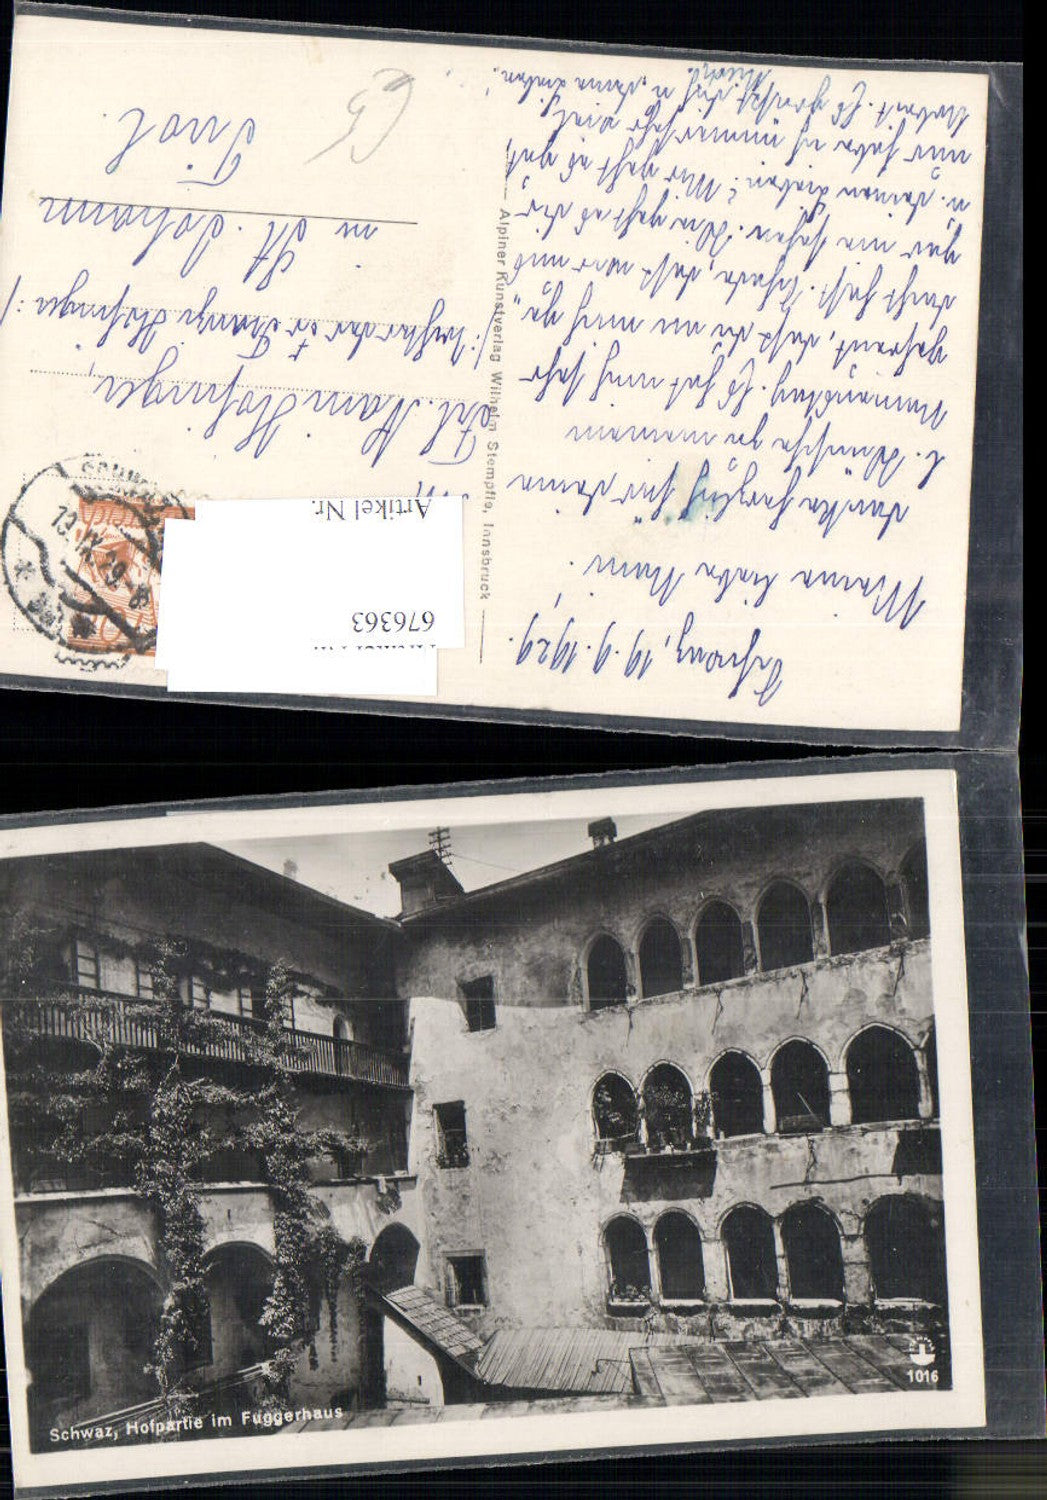 Schwaz, 19.9.1929.
Meine liebe Nani!
danke herzlich für deine
l. Wünsche zu meinem
Namenstag. Es hat mich sehr
gefreut, daß du an mich ge-
dacht hast. Schade, daß wir uns
gar nie sehen. Wie geht es dir
u. deinen Lieben? Mir geht es gut,
nur habe ich immer sehr viel
Arbeit. Es grüßt dich u. deine Lieben!
Alpiner Kunstverlag Wilhelm Stempfle, Innsbruck
Frl. Nani Hofinger,
in St. Johann
Tirol.
SCHWAZ
19.IX.29
Artikel Nr.
676363
Schwaz, Hofpartie im Fuggerhaus
1016